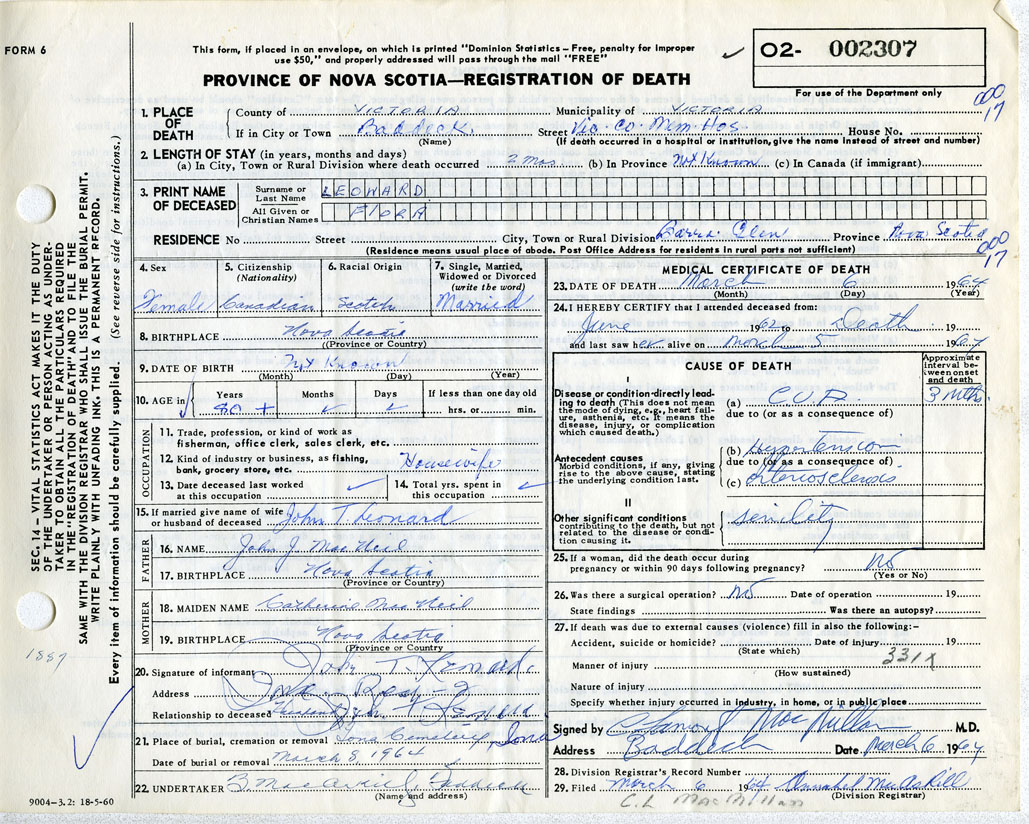 FORM 6
This form, if placed in an envelope, on which is printed "Dominion Statistics – Free, penalty for improper
use $50," and properly addressed will pass through the mail "FREE"
PROVINCE OF NOVA SCOTIA—REGISTRATION OF DEATH
O2- 002307
For use of the Department only
000
17
1. PLACE OF DEATH
County of VICTORIA Municipality of VICTORIA
If in City or Town Baddeck Street Vic. Co. Mem. Hos. House No.
(Name) (If death occurred in a hospital or institution, give the name instead of street and number)
2. LENGTH OF STAY (in years, months and days)
(a) In City, Town or Rural Division where death occurred 2 mos. (b) In Province Not Known (c) In Canada (if immigrant)
3. PRINT NAME OF DECEASED
Surname or Last Name LEONARD
All Given or Christian Names FLORA
RESIDENCE No Street City, Town or Rural Division Barra Glen Province Nova Scotia
(Residence means usual place of abode. Post Office Address for residents in rural parts not sufficient)
000
17
4. Sex
Female
5. Citizenship (Nationality)
Canadian
6. Racial Origin
Scotch
7. Single, Married, Widowed or Divorced (write the word)
Married
8. BIRTHPLACE Nova Scotia
(Province or Country)
9. DATE OF BIRTH Not Known
(Month) (Day) (Year)
10. AGE in Years Months Days If less than one day old
80 + hrs. or min.
OCCUPATION
11. Trade, profession, or kind of work as
fisherman, office clerk, sales clerk, etc.
12. Kind of industry or business, as fishing,
bank, grocery store, etc. Housewife
13. Date deceased last worked at this occupation
14. Total yrs. spent in this occupation
15. If married give name of wife or husband of deceased John T. Leonard
FATHER
16. NAME John J. MacNeil
17. BIRTHPLACE Nova Scotia
(Province or Country)
MOTHER
18. MAIDEN NAME Catherine MacNeil
19. BIRTHPLACE Nova Scotia
(Province or Country
20. Signature of informant John T. Leonard
Address Iona
Relationship to deceased Husband
21. Place of burial, cremation or removal Iona Cemetery, Iona
Date of burial or removal March 8, 1964
22. UNDERTAKER
(Name and address)
MEDICAL CERTIFICATE OF DEATH
23. DATE OF DEATH March 6 1964
(Month) (Day) (Year)
24. I HEREBY CERTIFY that I attended deceased from:
June 1962 to Death 19
and last saw her alive on March 5 1964
CAUSE OF DEATH
Approximate interval between onset and death
I
Disease or condition directly leading to death (This does not mean the mode of dying, e.g., heart failure, asthenia, etc. It means the disease, injury, or complication which caused death.)
(a) C.V.A. 3 mths.
due to (or as a consequence of)
Antecedent causes
Morbid conditions, if any, giving rise to the above cause, stating the underlying condition last.
(b) Hypertension
due to (or as a consequence of)
(c) Arteriosclerosis
II
Other significant conditions contributing to the death, but not related to the disease or condition causing it.
Senility
25. If a woman, did the death occur during
pregnancy or within 90 days following pregnancy? No
(Yes or No)
26. Was there a surgical operation? No Date of operation 19
State findings Was there an autopsy?
27. If death was due to external causes (violence) fill in also the following:–
Accident, suicide or homicide? Date of injury 19
(State which)
331X
Manner of injury
(How sustained)
Nature of injury
Specify whether injury occurred in industry, in home, or in public place
Signed by MacMillan M.D.
Address Baddeck Date March 6 1964
28. Division Registrar's Record Number
29. Filed March 6 1964 Annabel MacAskill
(Division Registrar)
C.L. MacMillan
SEC. 14 – VITAL STATISTICS ACT MAKES IT THE DUTY
OF THE UNDERTAKER OR PERSON ACTING AS UNDER-
TAKER TO OBTAIN ALL THE PARTICULARS REQUIRED
IN THE "REGISTRATION OF DEATH" AND TO FILE THE
SAME WITH THE DIVISION REGISTRAR WHO SHALL ISSUE THE BURIAL PERMIT.
WRITE PLAINLY WITH UNFADING INK. THIS IS A PERMANENT RECORD.
Every item of information should be carefully supplied. (See reverse side for instructions.)
1887
9004–3.2: 18-5-60